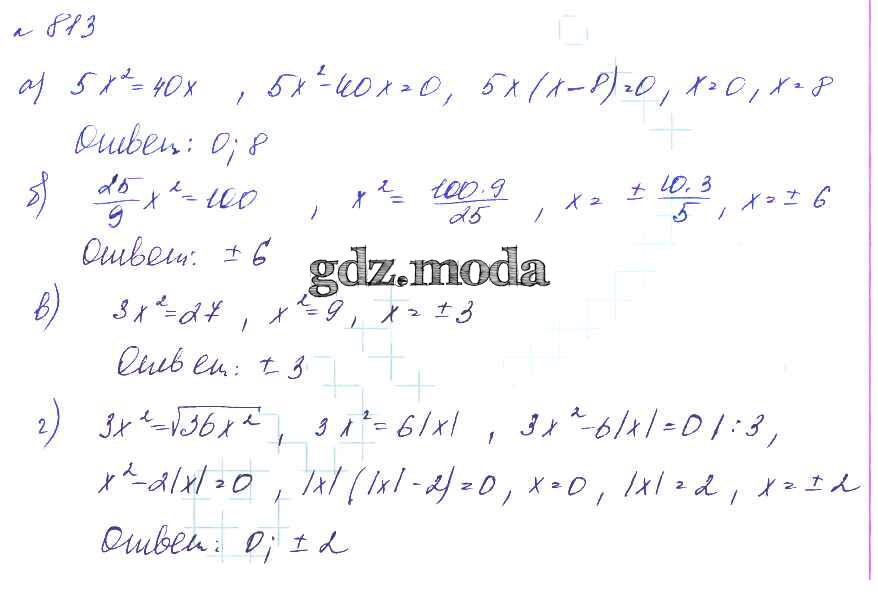 № 813
а) 5x² = 40x , 5x² - 40x = 0, 5x(x - 8) = 0, x = 0, x = 8
Ответ: 0; 8
б) 25/9 x² = 100 , x² = 100·9/25 , x = ± 10·3/5 , x = ± 6
Ответ: ± 6
gdz.moda
в) 3x² = 27 , x² = 9, x = ± 3
Ответ: ± 3
г) 3x² = √36x² , 3x² = 6|x| , 3x² - 6|x| = 0 | :3,
x² - 2|x| = 0 , |x|(|x| - 2) = 0, x = 0, |x| = 2, x = ± 2
Ответ: 0; ± 2